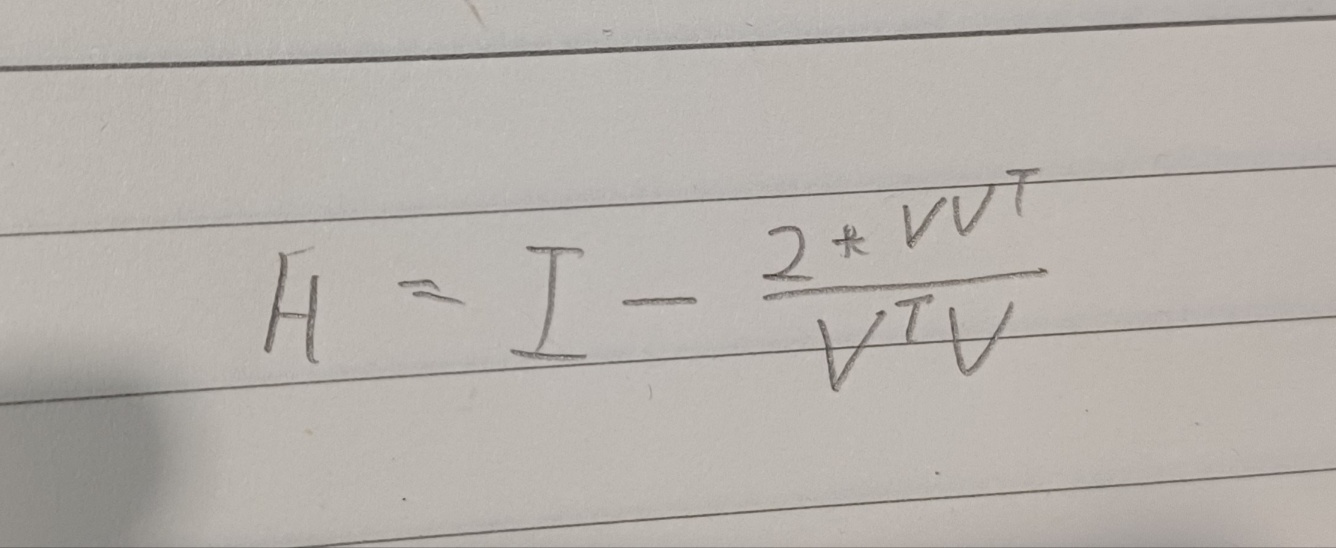 H = I - \frac{2 * VV^T}{V^T V}